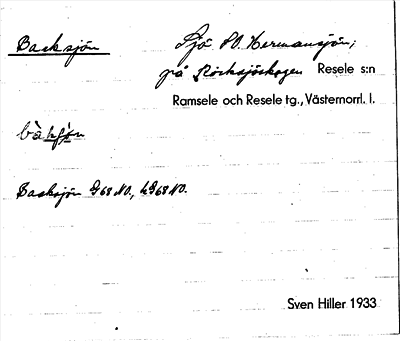 Backsjön
Sjö SV. Hermansjön;
på Rocksjöskogen Resele s:n
Ramsele och Resele tg., Västernorrl. l.
Backsjön G68 NO., LG68 NO.
Sven Hiller 1933